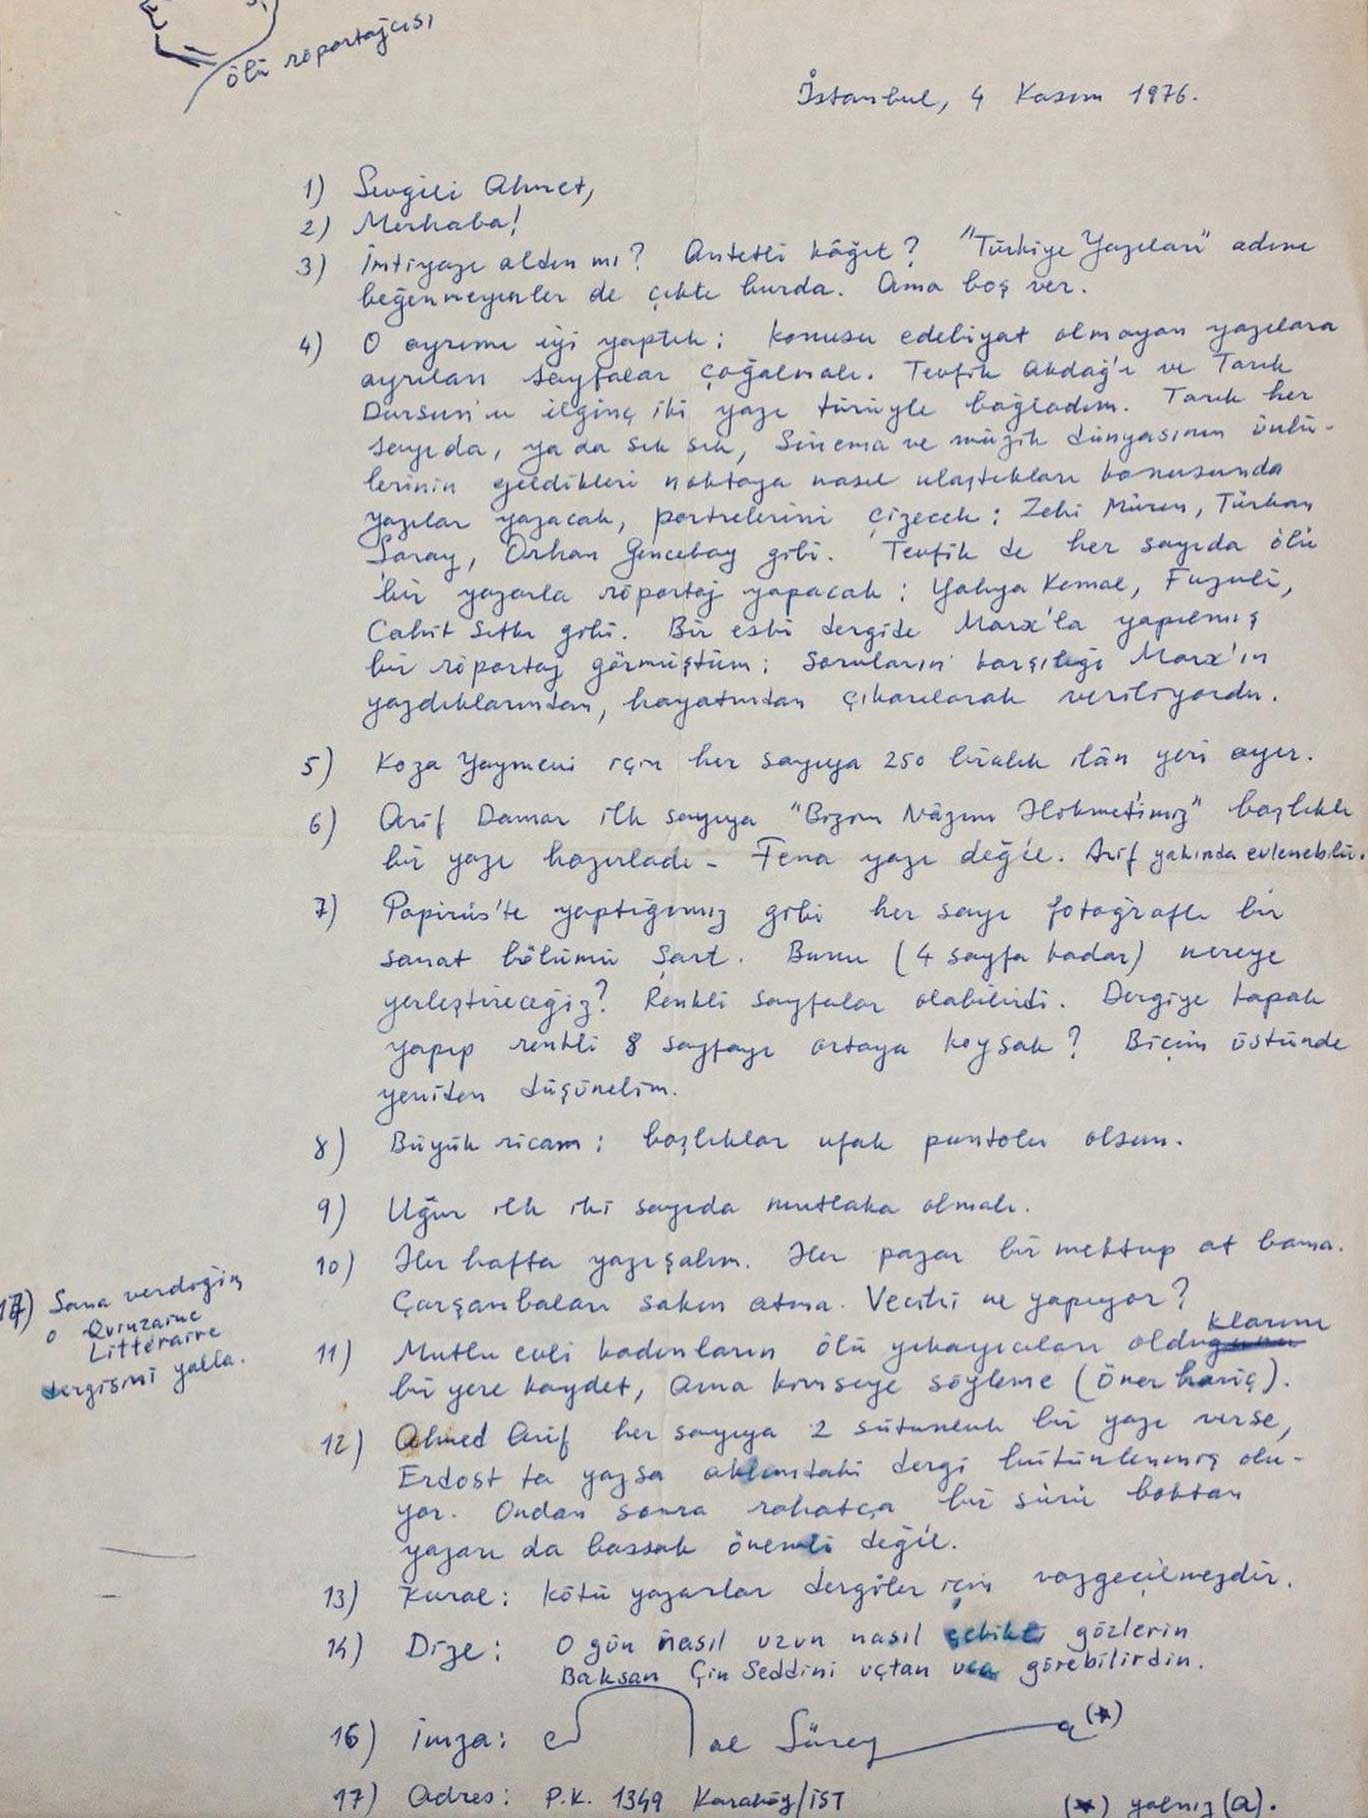 ölü röportajcısı
İstanbul, 4 Kasım 1976.
1) Sevgili Ahmet,
2) Merhaba!
3) İmtiyazı aldın mı? Antetli kâğıt? "Türkiye Yazıları" adını
beğenmeyenler de çıktı burda. Ama boş ver.
4) O ayrımı iyi yaptık: konusu edebiyat olmayan yazılara
ayrılan sayfalar çoğalmalı. Tevfik Akdağ'ı ve Tarık
Dursun'u ilginç iki yazı türüyle bağladım. Tarık her
sayıda, ya da sık sık, sinema ve müzik dünyasının ünlü-
lerinin geldikleri noktaya nasıl ulaştıkları konusunda
yazılar yazacak, portrelerini çizecek: Zeki Müren, Türkan
Şoray, Orhan Gencebay gibi. Tevfik de her sayıda ölü
bir yazarla röportaj yapacak: Yahya Kemal, Fuzuli,
Cahit Sıtkı gibi. Bir eski dergide Marx'la yapılmış
bir röportaj görmüştüm: soruların karşılığı Marx'ın
yazdıklarından, hayatından çıkarılarak veriliyordu.
5) Koza Yayınevi için her sayıya 250 liralık ilân yeri ayır.
6) Arif Damar ilk sayıya "Bizim Nâzım Hikmetimiz" başlıklı
bir yazı hazırladı - Fena yazı değil. Arif yakında evlenebilir.
7) Papirüs'te yaptığımız gibi her sayı fotoğraflı bir
sanat bölümü şart. Bunu (4 sayfa kadar) nereye
yerleştireceğiz? Renkli sayfalar olabilirdi. Dergiye kapak
yapıp renkli 8 sayfayı ortaya koysak? Biçim üstünde
yeniden düşünelim.
8) Büyük ricam: başlıklar ufak puntolu olsun.
9) Uğur ilk iki sayıda mutlaka olmalı.
10) Her hafta yazışalım. Her pazar bir mektup at bana.
Çarşambaları sakın atma. Vecihi ne yapıyor?
17) Sana verdiğim
o Quinzaine
Littéraire
dergisini yolla.
11) Mutlu evli kadınların ölü yıkayıcıları olduklarını
bir yere kaydet, ama kimseye söyleme (Öner hariç).
12) Ahmed Arif her sayıya 2 sütunluk bir yazı verse,
Erdost ta yazsa aklımdaki dergi bütünlenmiş olu-
yor. Ondan sonra rahatça bir sürü boktan
yazarı da bassak önemli değil.
13) Kural: Kötü yazarlar dergiler için vazgeçilmezdir.
14) Dize: O gün nasıl uzun nasıl çekikti gözlerin
Baksan Çin Seddini uçtan uca görebilirdin.
16) İmza: Cemal Süreya (*)
17) Adres: P.K. 1349 Karaköy/İST
(*) yalnız (a).